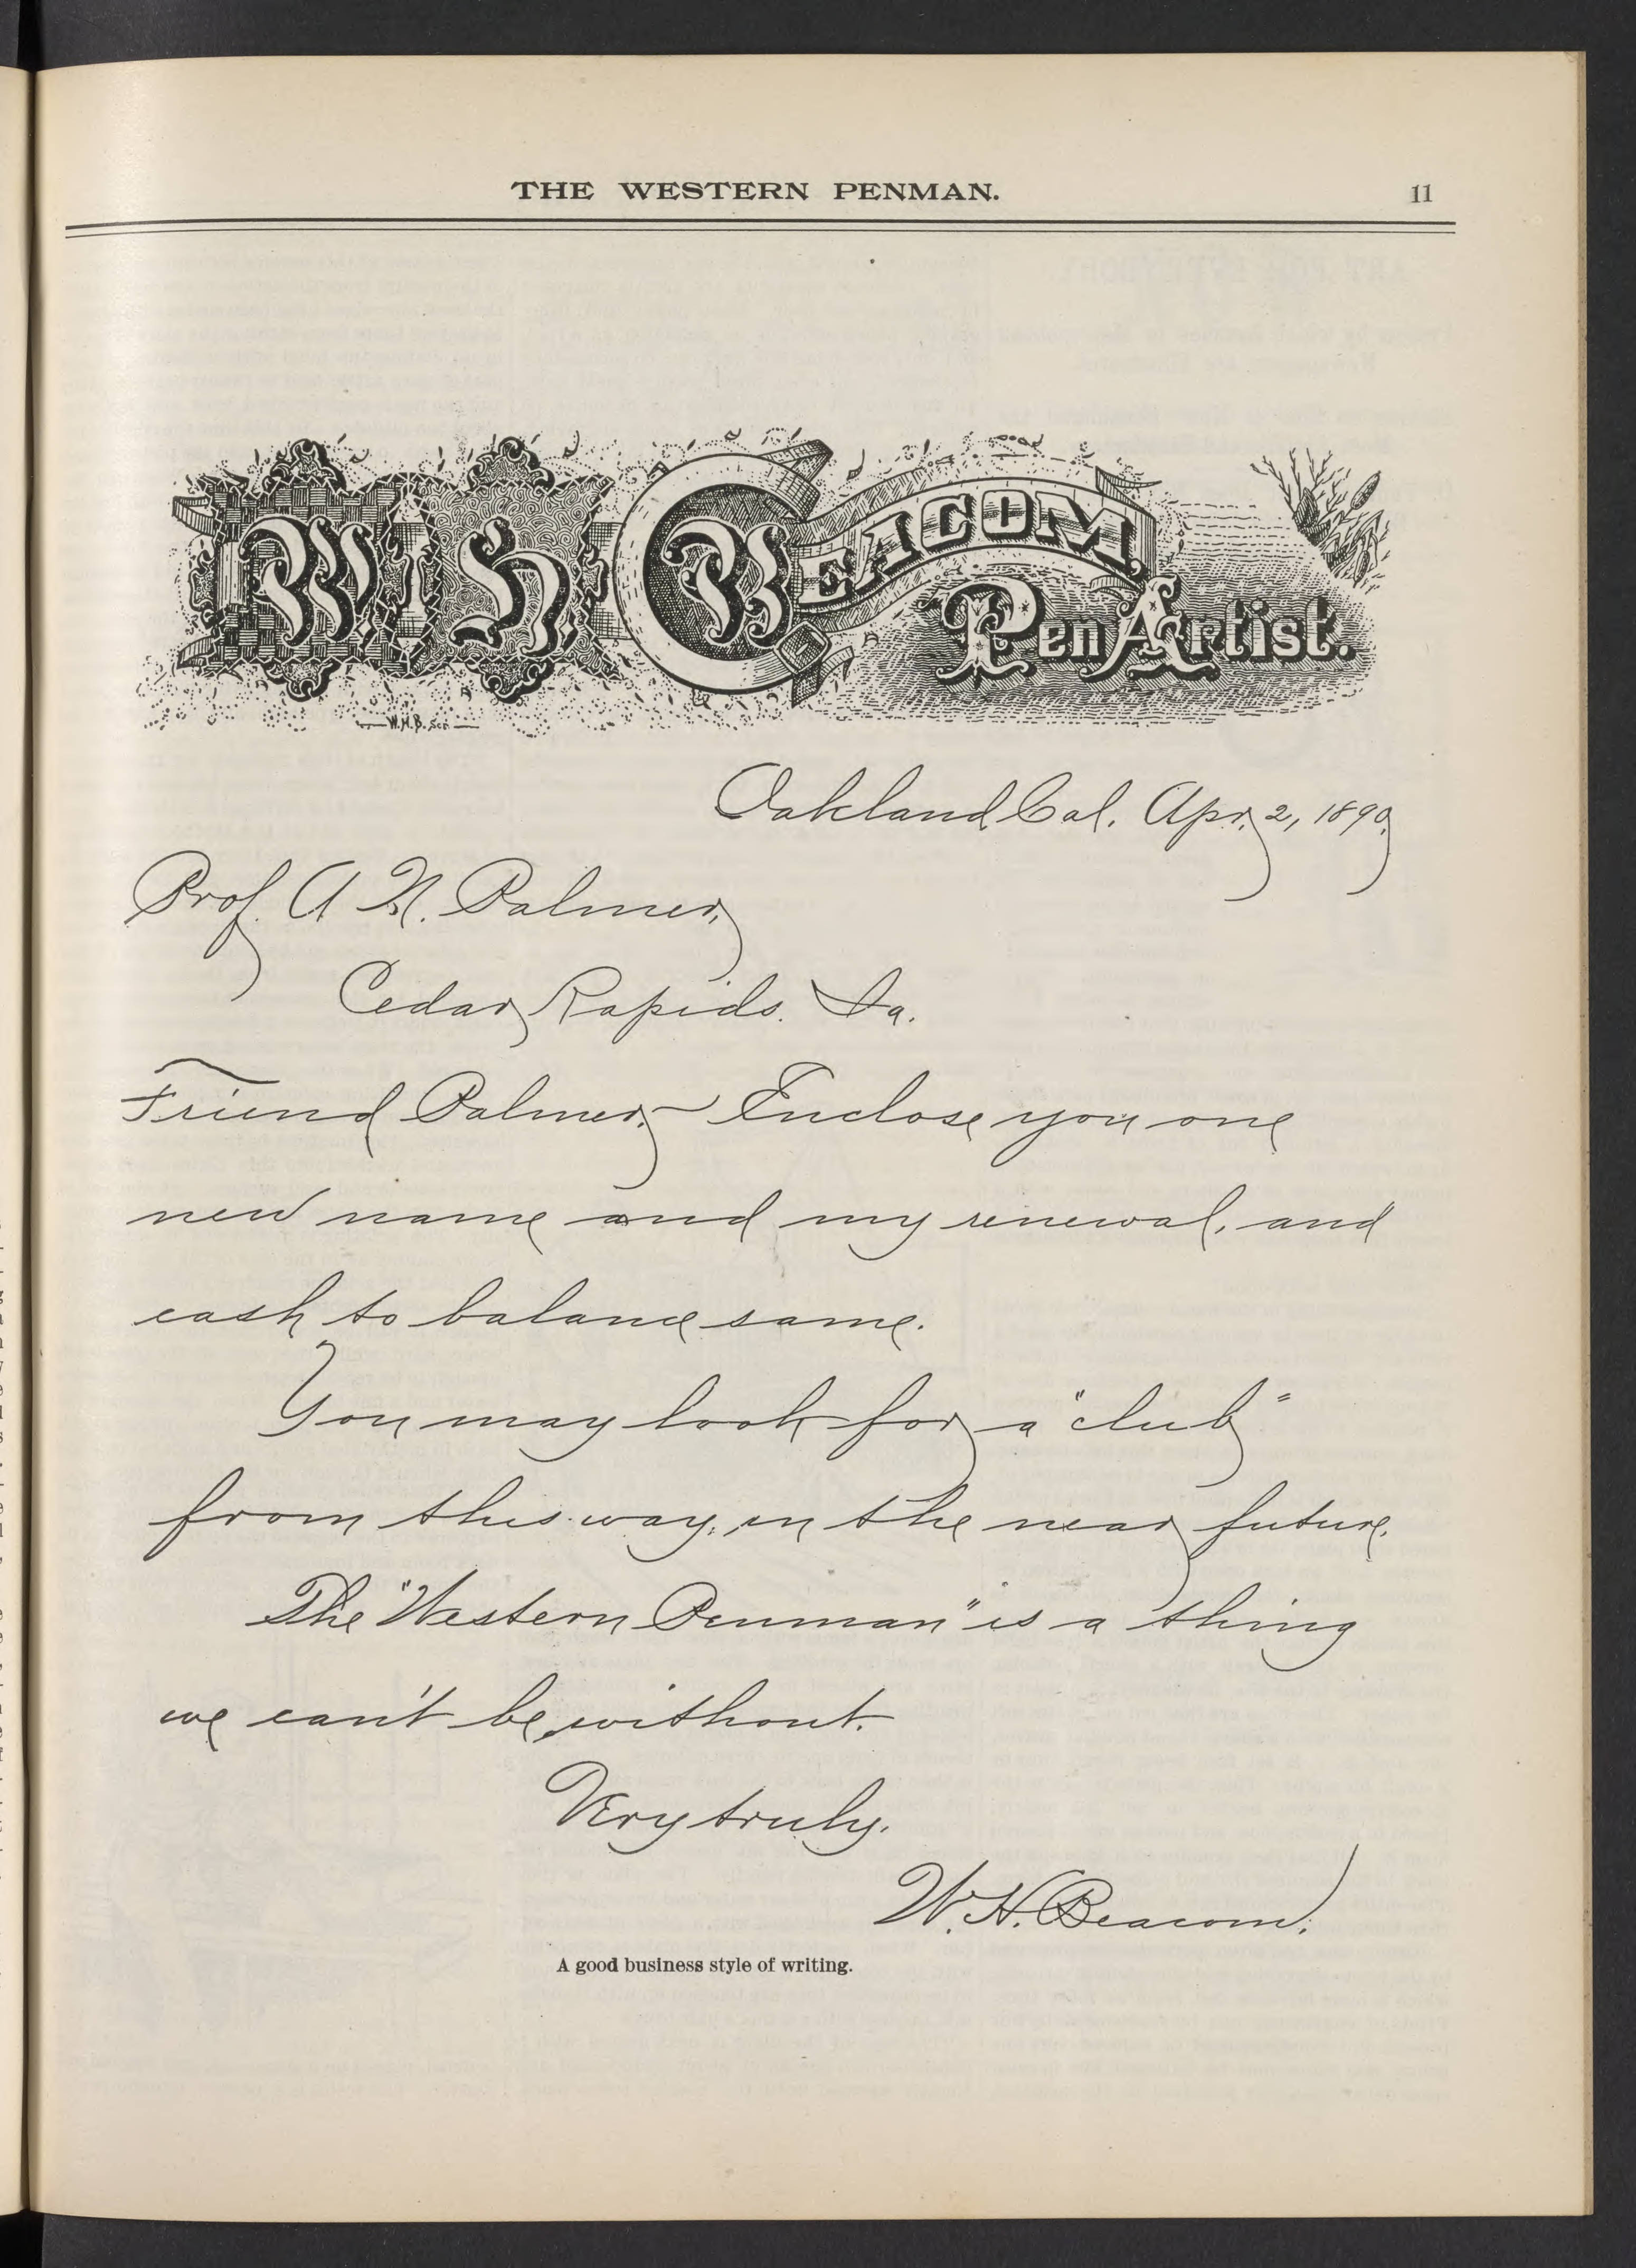 THE WESTERN PENMAN. 11
W. H. BEACOM
Pen Artist.
W.H.B. scr.
Oakland, Cal. Apr. 2, 1890.
Prof. A. N. Palmer,
Cedar Rapids. Ia.
Friend Palmer:- Enclose you one
new name and my renewal, and
cash to balance same.
You may look for a "club"
from this way, in the near future.
The "Western Penman" is a thing
we can't be without.
Very truly.
W. H. Beacom.
A good business style of writing.